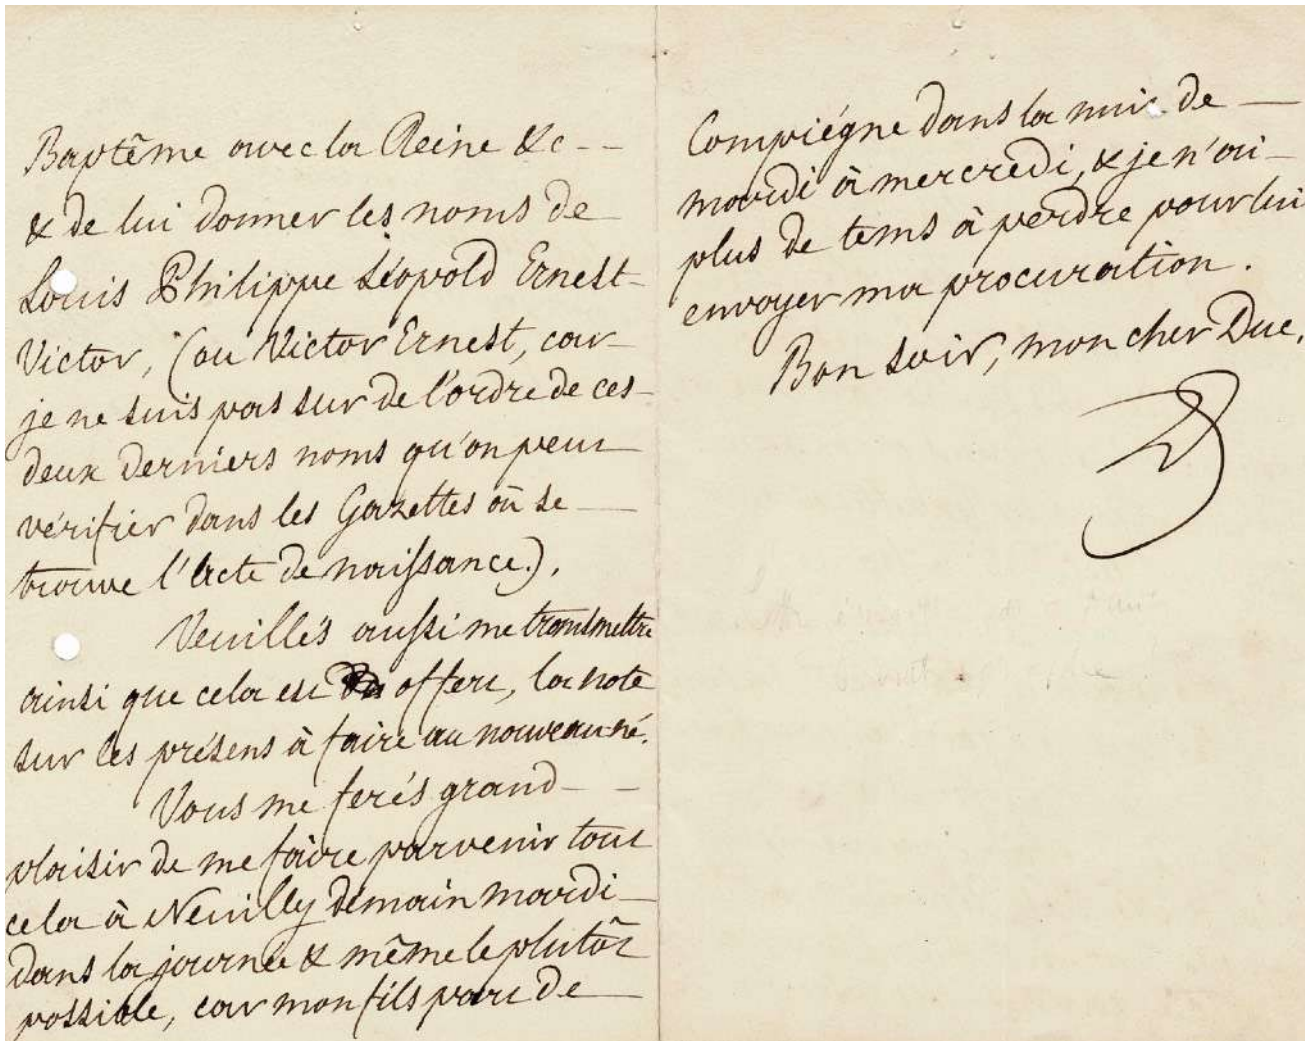 Baptême avec la Reine &c--
& de lui donner les noms de
Louis Philippe Léopold Ernest-
Victor, (ou Victor Ernest, car-
je ne suis pas sur de l'ordre de ces-
deux derniers noms qu'on peut
vérifier dans les Gazettes où se—
trouve l'acte de naissance).
Veuillés aussi me transmettre
ainsi que cela est offert, la note
sur les présens à faire au nouveau né.
Vous me ferés grand--
plaisir de me faire parvenir tout
cela à Neuilly demain mardi—
dans la journée & même le plutôt
possible, car mon fils part de—
Compiégne dans la nuit de—
mardi à mercredi, & je n'ai—
plus de tems à perdre pour lui
envoyer ma procuration.
Bon soir, mon cher Duc.